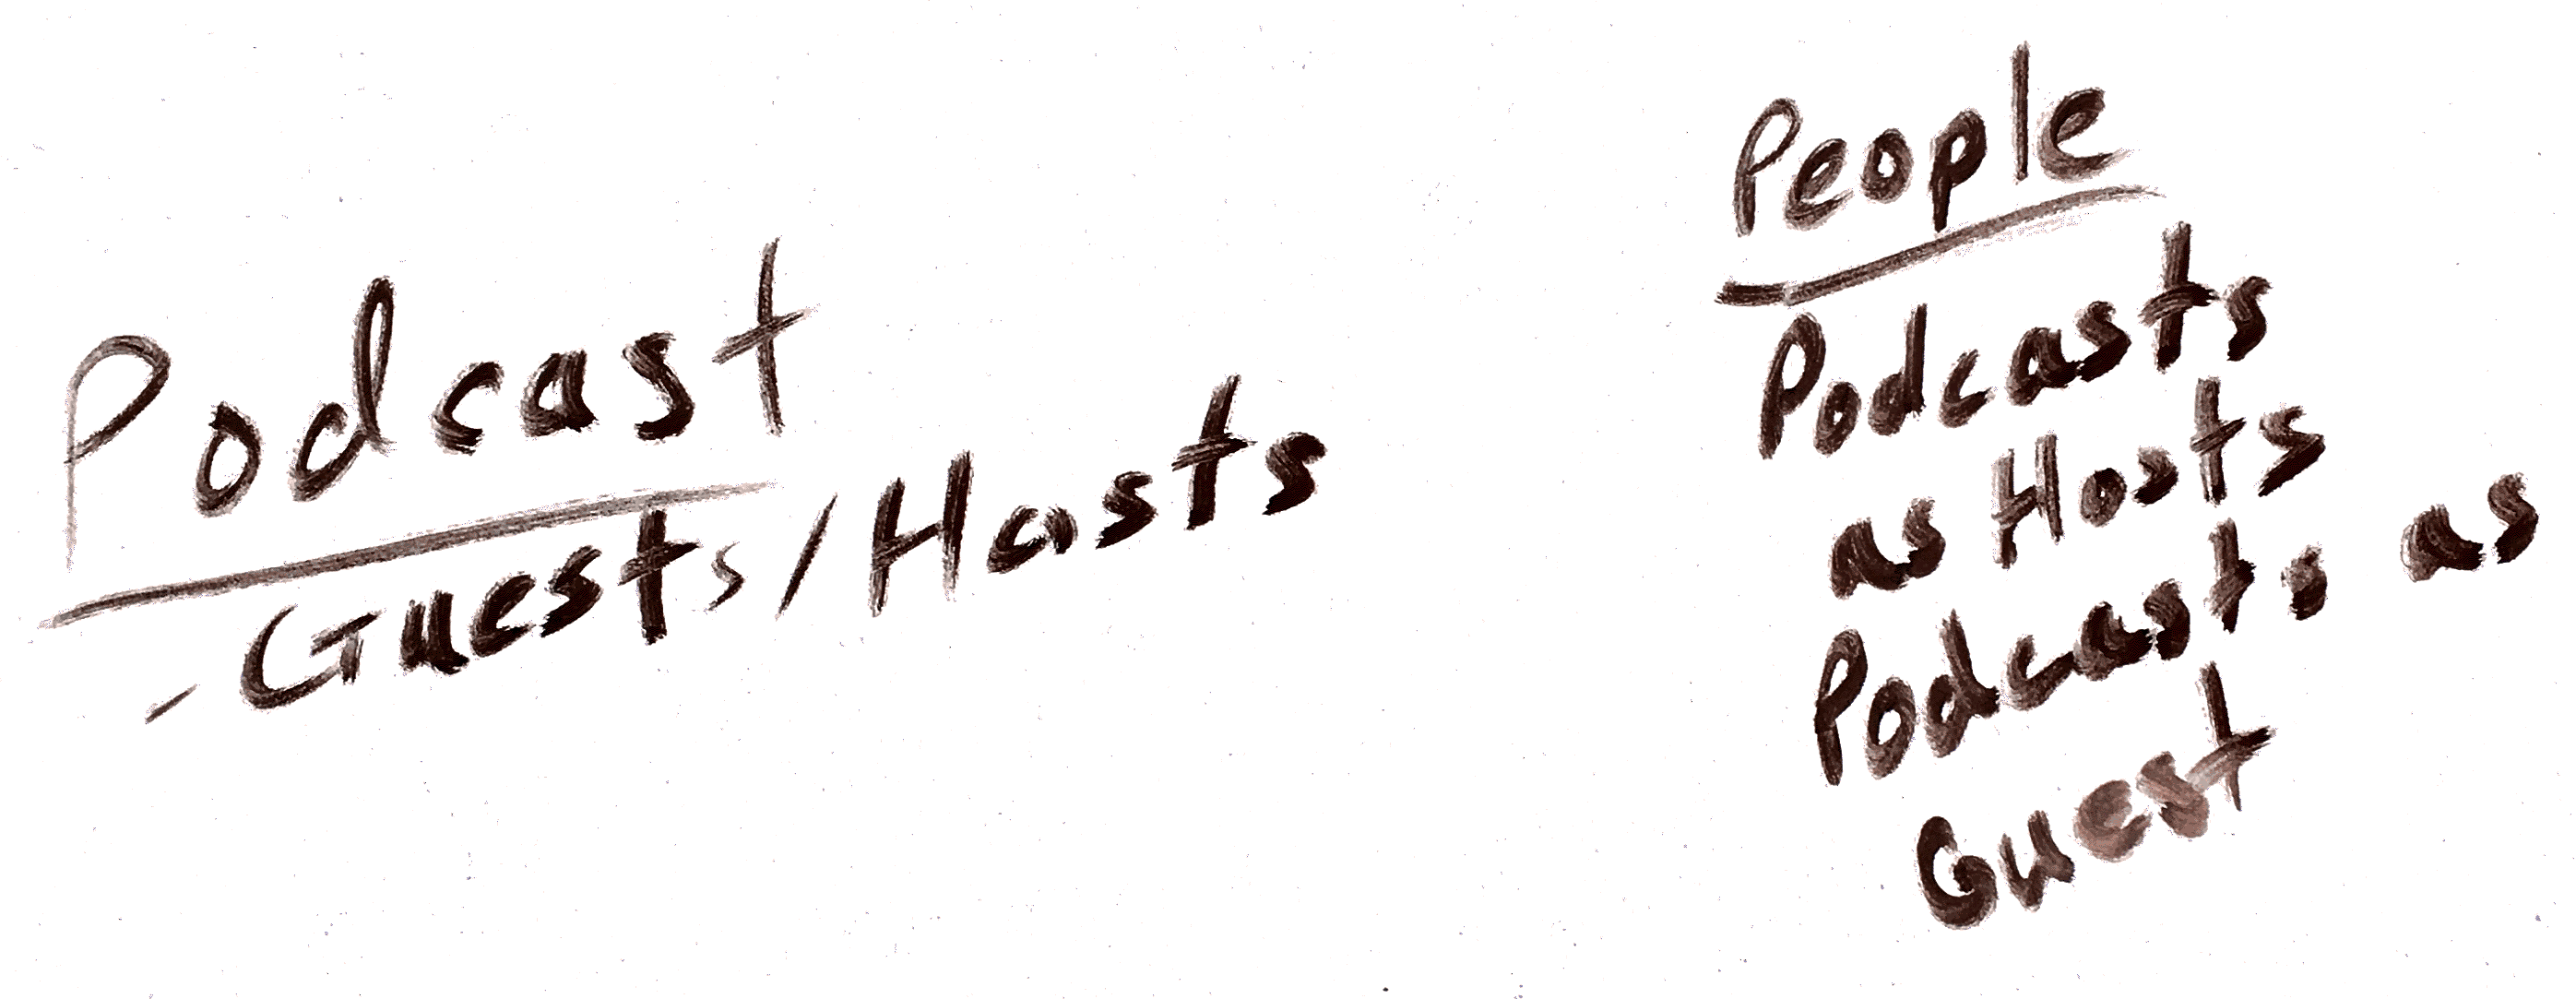 Podcast
- Guests/Hosts
People
Podcasts
as Hosts
Podcasts as
Guest